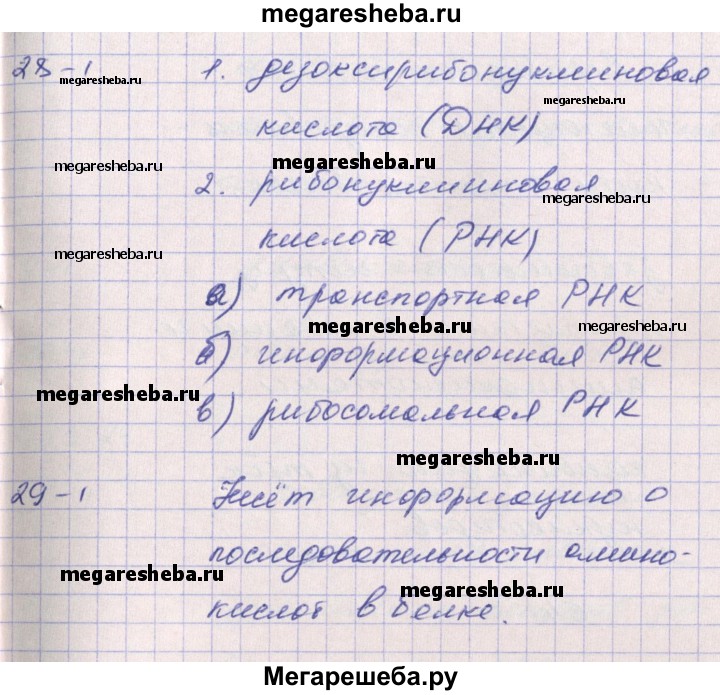 megaresheba.ru
28-1 1. дезоксирибонуклиновая
megaresheba.ru
megaresheba.ru
кислота (ДНК)
megaresheba.ru
megaresheba.ru
2. рибонуклиновая
megaresheba.ru
кислота (РНК)
megaresheba.ru
а) транспортная РНК
megaresheba.ru
megaresheba.ru
б) информационная РНК
megaresheba.ru
в) рибосомальная РНК
megaresheba.ru
29-1 Несёт информацию о
последовательности амино-
megaresheba.ru
megaresheba.ru
кислот в белке.
Мегарешеба.ру